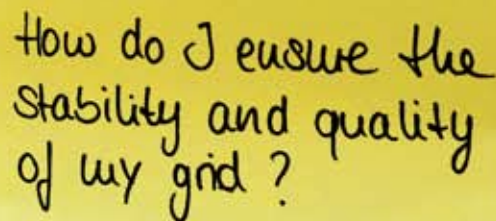 How do I ensure the
stability and quality
of my grid ?